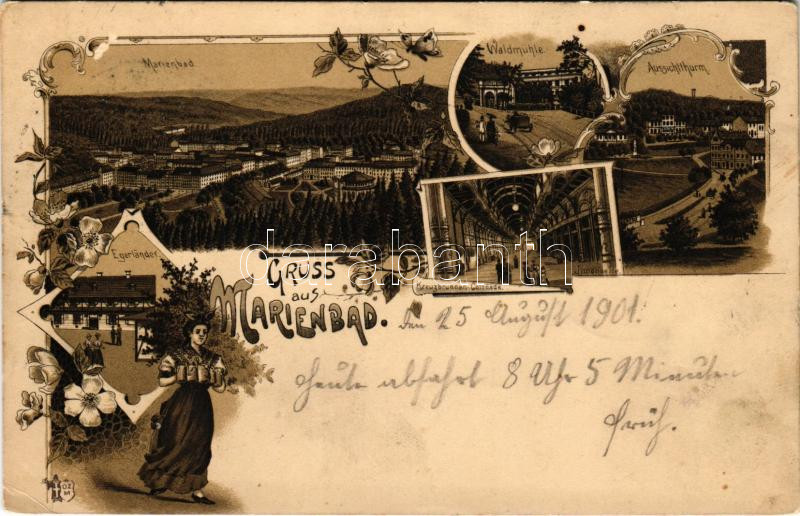 Marienbad
Waldmühle
Aussichtthurm
Egerländer
Kreuzbrunnen-Colonade
GRUSS
aus
MARIENBAD.
den 25 August 1901.
heute abfahrt 8 Uhr 5 Minuten
früh.
darabanth